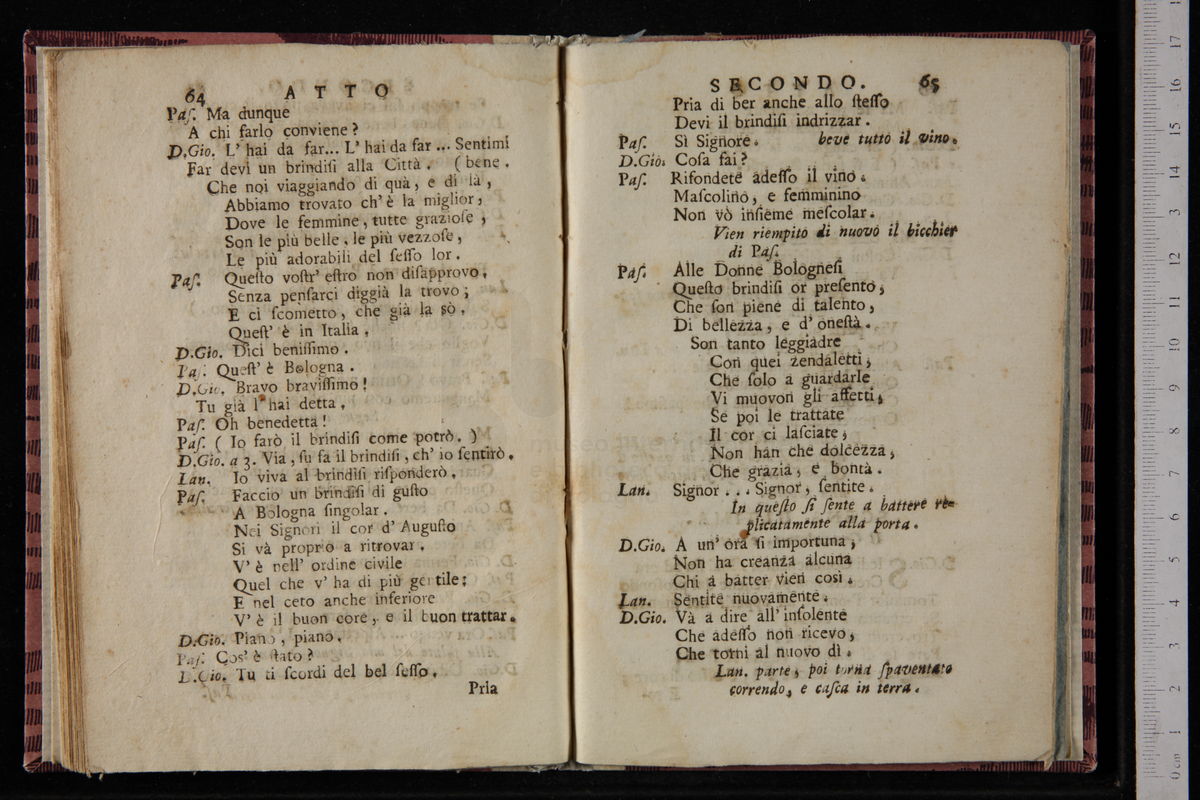 64 ATTO
Paſ. Ma dunque
A chi farlo conviene?
D.Gio. L' hai da far... L' hai da far ... Sentimi
Far devi un brindiſi alla Città. (bene.
Che noi viaggiando di quà, e di là,
Abbiamo trovato ch' è la miglior,
Dove le femmine, tutte grazioſe,
Son le più belle, le più vezzoſe,
Le più adorabili del feſſo lor.
Paſ. Queſto voſtr' eſtro non diſapprovo,
Senza penſarci diggià la trovo;
E ci ſcometto, che già la sò,
Queſt' è in Italia,
D.Gio. Dici beniſſimo.
Paſ. Queſt' è Bologna.
D.Gio. Bravo braviſſimo!
Tu già l' hai detta,
Paſ. Oh benedetta!
Paſ. ( Io farò il brindiſi come potrò. )
D.Gio. a 3. Via, ſu fa il brindiſi, ch' io ſentirò.
Lan. Io viva al brindiſi riſponderò.
Paſ. Faccio un brindiſi di guſto
A Bologna ſingolar.
Nei Signori il cor d' Auguſto
Si và proprio a ritrovar.
V' è nell' ordine civile
Quel che v' ha di più gentile;
E nel ceto anche inferiore
V' è il buon core, e il buon trattar.
D.Gio. Piano, piano.
Paſ. Cos' è ſtato?
D.Gio. Tu ti ſcordi del bel feſſo.
Pria
SECONDO. 65
Pria di ber anche allo ſteſſo
Devi il brindiſi indrizzar.
Paſ. Sì Signore. beve tutto il vino.
D.Gio. Coſa fai?
Paſ. Rifondete adeſſo il vino.
Maſcolino, e femminino
Non vò inſieme meſcolar.
Vien riempito di nuovo il bicchier
di Paſ.
Paſ. Alle Donne Bologneſi
Queſto brindiſi or preſento,
Che ſon piene di talento,
Di bellezza, e d' oneſtà.
Son tanto leggiadre
Con quei zendaletti,
Che ſolo a guardarle
Vi muovon gli affetti,
Se poi le trattate
Il cor ci laſciate,
Non han che dolcezza,
Che grazia, e bontà.
Lan. Signor . . . Signor, ſentite.
In queſto ſi ſente a battere re-
plicatamente alla porta.
D.Gio. A un' ora ſi importuna,
Non ha creanza alcuna
Chi a batter vien così.
Lan. Sentite nuovamente.
D.Gio. Và a dire all' inſolente
Che adeſſo non ricevo,
Che torni al nuovo dì.
Lan. parte, poi torna ſpaventato
correndo, e caſca in terra.